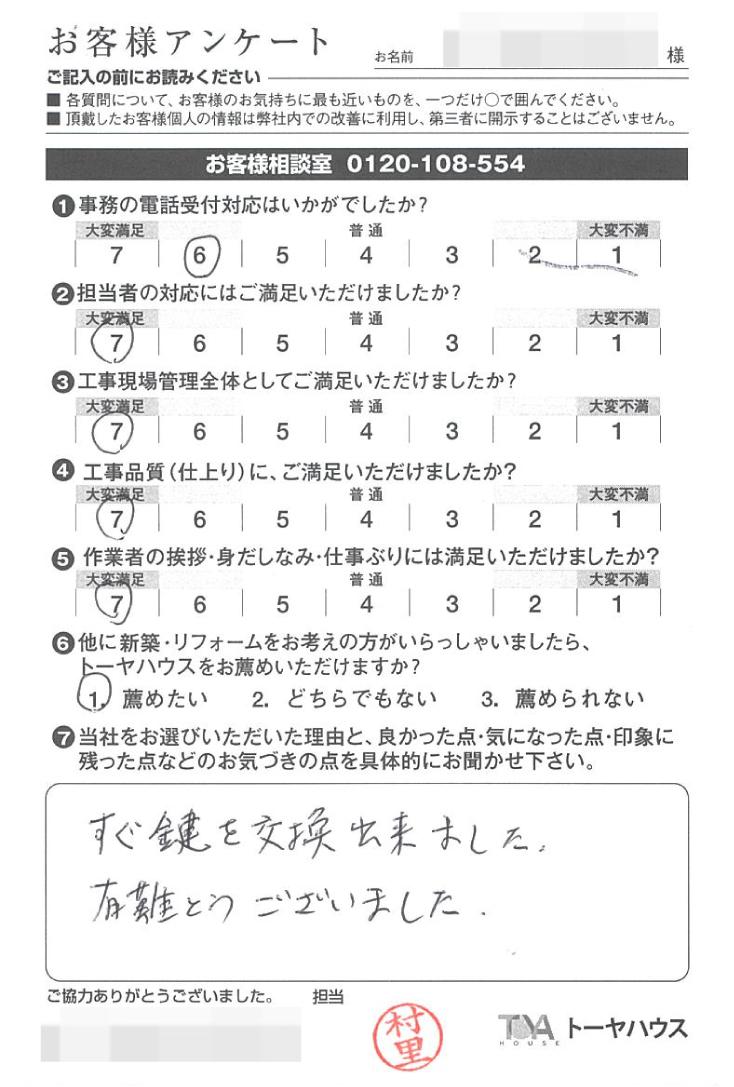 お客様アンケート
お名前 様
ご記入の前にお読みください
■ 各質問について、お客様のお気持ちに最も近いものを、一つだけ○で囲んでください。
■ 頂戴したお客様個人の情報は弊社内での改善に利用し、第三者に開示することはございません。
お客様相談室 0120-108-554
❶事務の電話受付対応はいかがでしたか?
大変満足 普通 大変不満
7 6 5 4 3 2 1
❷担当者の対応にはご満足いただけましたか?
大変満足 普通 大変不満
7 6 5 4 3 2 1
❸工事現場管理全体としてご満足いただけましたか?
大変満足 普通 大変不満
7 6 5 4 3 2 1
❹工事品質(仕上り)に、ご満足いただけましたか?
大変満足 普通 大変不満
7 6 5 4 3 2 1
❺作業者の挨拶・身だしなみ・仕事ぶりには満足いただけましたか?
大変満足 普通 大変不満
7 6 5 4 3 2 1
❻他に新築・リフォームをお考えの方がいらっしゃいましたら、
トーヤハウスをお薦めいただけますか?
1. 薦めたい 2. どちらでもない 3. 薦められない
❼当社をお選びいただいた理由と、良かった点・気になった点・印象に
残った点などのお気づきの点を具体的にお聞かせ下さい。
すぐ鍵を交換出来ました。
有難とうございました.
ご協力ありがとうございました。 担当
村里
TOYA HOUSE トーヤハウス